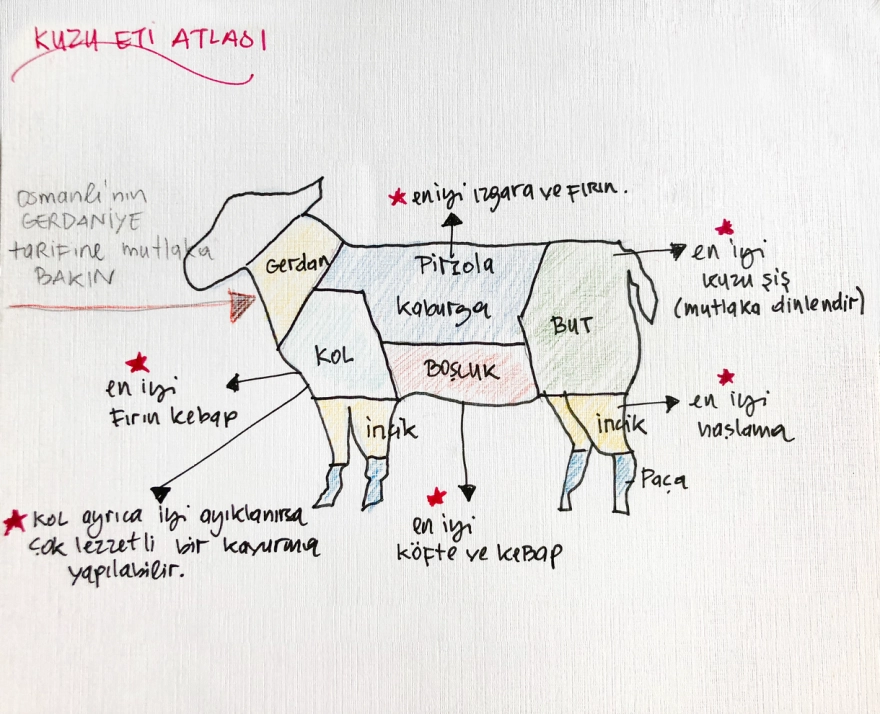 KUZU ETİ ATLASI
Osmanlı'nın
GERDANİYE
tarifine mutlaka
BAKIN
★ en iyi ızgara ve FIRIN.
★
en iyi
kuzu şiş
(mutlaka dinlendir)
Gerdan
Pirzola
kaburga
BUT
KOL
BOŞLUK
★
en iyi
Fırın kebap
incik
incik
★
en iyi
haşlama
Paça
★ KOL ayrıca iyi ayıklanırsa
çok lezzetli bir kavurma
yapılabilir.
★
en iyi
köfte ve kebap